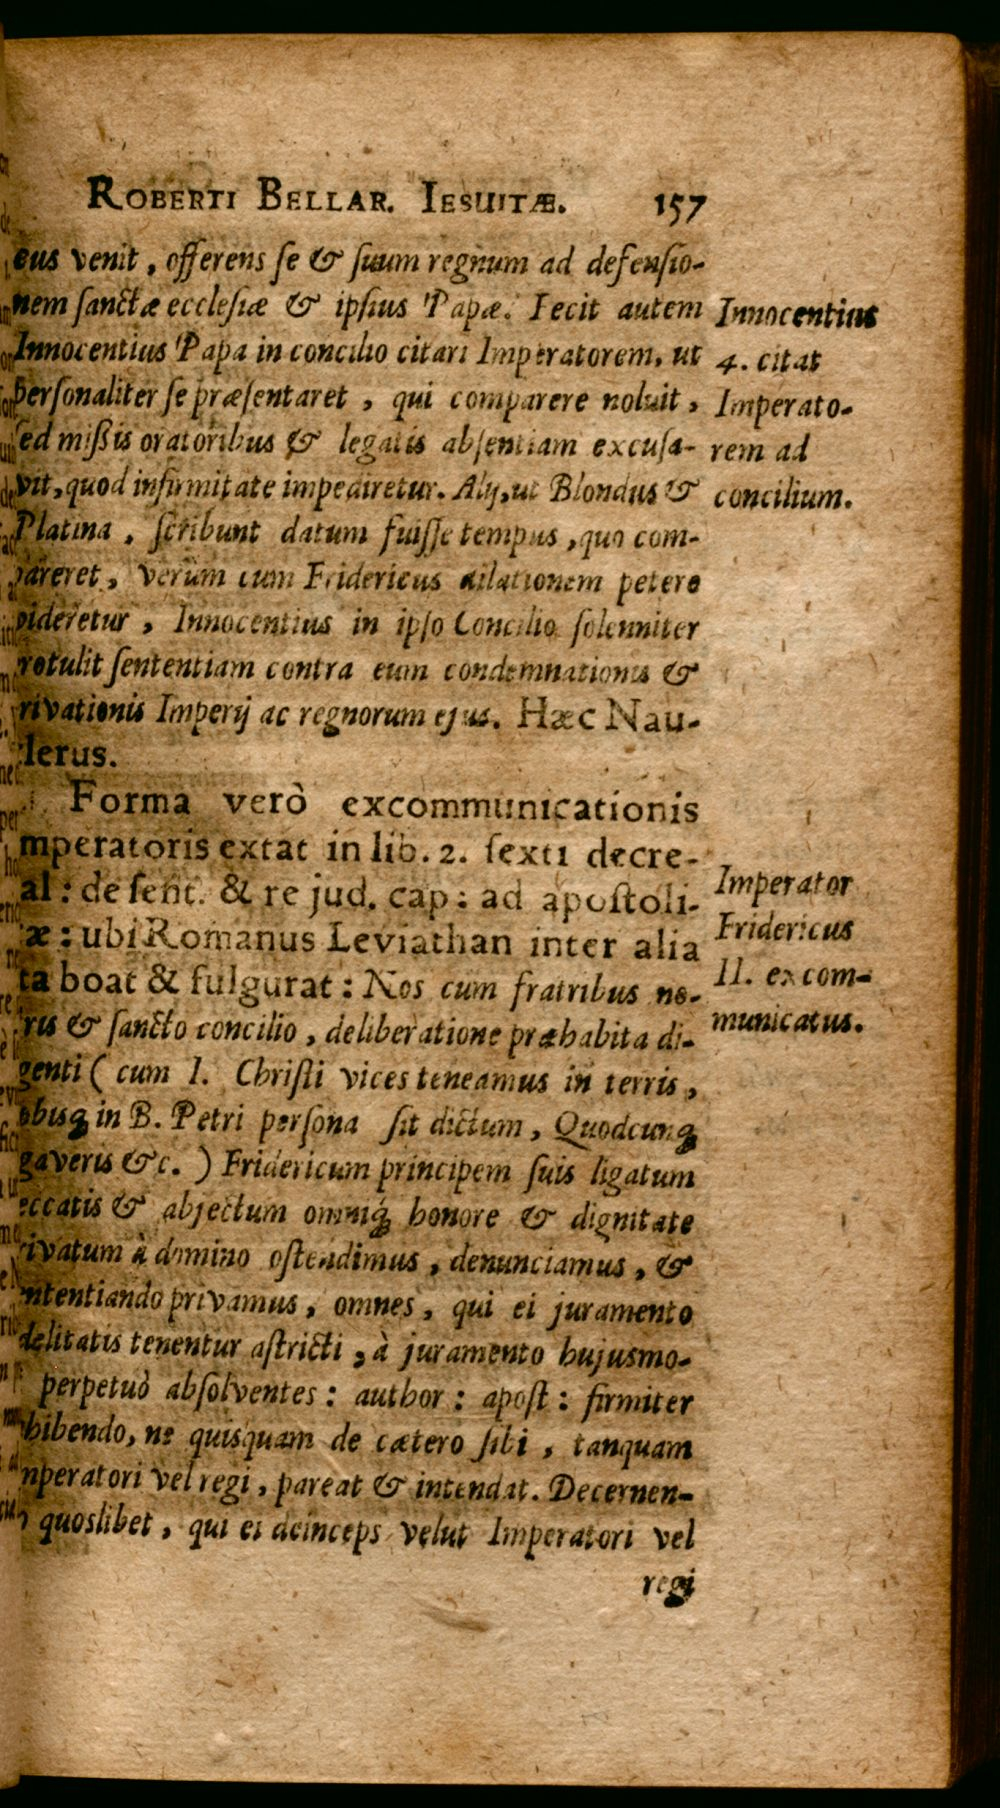 ROBERTI BELLAR. IESUITÆ. 157
eus venit, offerens se & suum regnum ad defensio-
nem sanctæ ecclesiæ & ipsius Papæ. Fecit autem
Innocentius Papa in concilio citari Imperatorem, ut
personaliter se præsentaret, qui comparere noluit,
sed mißis oratoribus & legatis absentiam excusa-
vit, quod infirmitate impediretur. Alij, ut Blondus &
Platina, scribunt datum fuisse tempus, quo com-
pareret, verùm cum Fridericus dilationem petere
videretur, Innocentius in ipso Concilio solenniter
rotulit sententiam contra eum condemnationis &
rivationis Imperij ac regnorum ejus. Hæc Nau-
lerus.
Forma verò excommunicationis
mperatoris extat in lib. 2. sexti decre-
al: de sent. & re jud. cap: ad apostoli-
æ: ubi Romanus Leviathan inter alia
ta boat & fulgurat: Nos cum fratribus no-
ris & sancto concilio, deliberatione præhabita di-
genti (cum I. Christi vices teneamus in terris,
obisq́ in B. Petri persona sit dictum, Quodcunq́
gaveris &c.) Fridericum principem suis ligatum
eccatis & abjectum omniq́ honore & dignitate
rivatum à domino ostendimus, denunciamus, &
ntentiando privamus, omnes, qui ei juramento
delitatis tenentur astricti, à juramento hujusmo-
perpetuò absolventes: author: apost: firmiter
hibendo, ne quisquam de cætero sibi, tanquam
mperatori vel regi, pareat & intendat. Decernen-
quoslibet, qui ei deinceps velut Imperatori vel
regi
Innocentius
4. citat
Imperato-
rem ad
concilium.
Imperator
Fridericus
II. excom-
municatus.